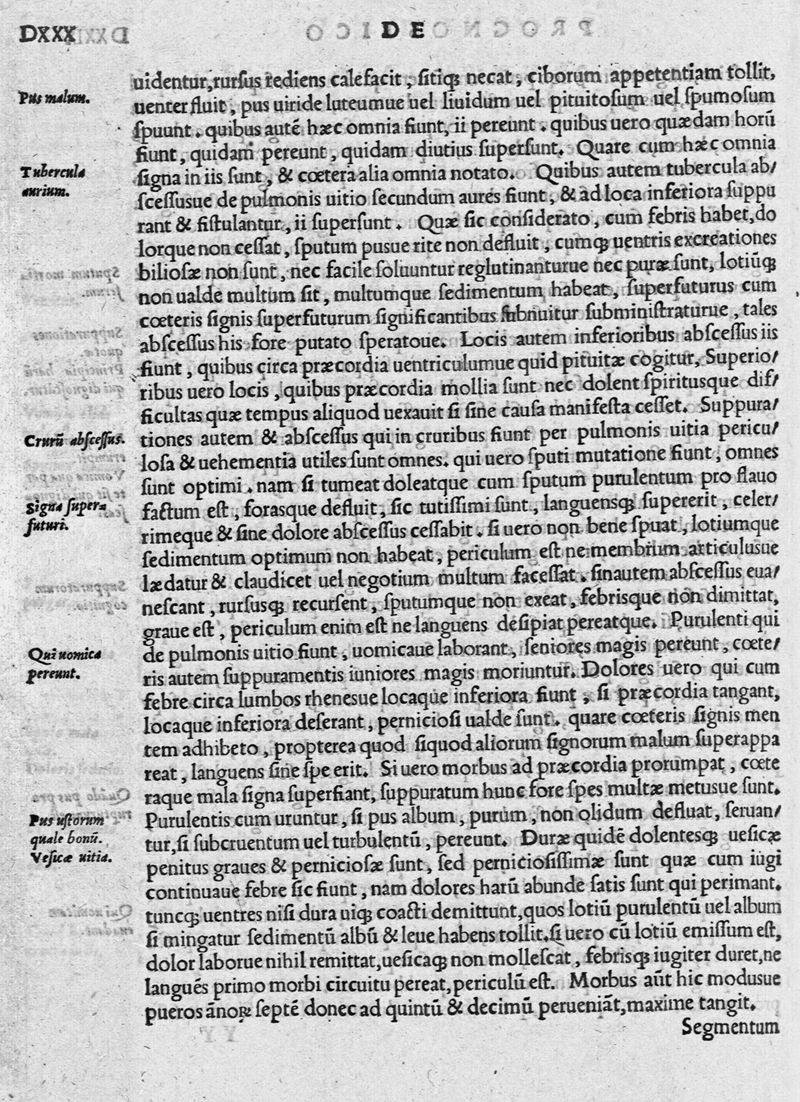 DXXX DE
uidentur, rursus rediens calefacit, sitiqꝫ necat, ciborum appetentiam tollit,
Pus malum.
uenter fluit, pus uiride luteumue uel liuidum uel pituitosum uel spumosum
spuunt. quibus autē hæc omnia fiunt, ii pereunt. quibus uero quædam horū
fiunt, quidam pereunt, quidam diutius supersunt. Quare cum hæc omnia
Tubercula
aurium.
signa in iis sunt, & cœtera alia omnia notato. Quibus autem tubercula ab/
scessusue de pulmonis uitio secundum aures fiunt, & ad loca inferiora suppu
rant & fistulantur, ii supersunt. Quæ sic considerato, cum febris habet, do
lorque non cessat, sputum pusue rite non defluit, cumqꝫ uentris excreationes
biliosæ non sunt, nec facile soluuntur reglutinanturue nec puræ sunt, lotiūqꝫ
non ualde multum sit, multumque sedimentum habeat, superfuturus cum
cœteris signis superfuturum significantibus subnuitur subministraturue, tales
abscessus his fore putato speratoue. Locis autem inferioribus abscessus iis
fiunt, quibus circa præcordia uentriculumue quid pituitæ cogitur, Superio/
ribus uero locis, quibus præcordia mollia sunt nec dolent spiritusque dif/
ficultas quæ tempus aliquod uexauit si sine causa manifesta cesset. Suppura/
Crurū abscessus.
tiones autem & abscessus qui in cruribus fiunt per pulmonis uitia pericu/
losa & uehementia utiles sunt omnes. qui uero sputi mutatione fiunt, omnes
sunt optimi. nam si tumeat doleatque cum sputum purulentum pro flauo
Signa super-
futuri.
factum est, forasque defluit, sic tutissimi sunt, languensqꝫ supererit, celer/
rimeque & sine dolore abscessus cessabit. si uero non bene spuat, lotiumque
sedimentum optimum non habeat, periculum est ne membrum articulusue
lædatur & claudicet uel negotium multum facessat. sinautem abscessus eua/
nescant, rursusqꝫ recursent, sputumque non exeat, febrisque non dimittat,
graue est, periculum enim est ne languens desipiat pereatque. Purulenti qui
Qui uomica
pereunt.
de pulmonis uitio fiunt, uomicaue laborant, seniores magis pereunt, cœte/
ris autem suppuramentis iuniores magis moriuntur. Dolores uero qui cum
febre circa lumbos rhenesue locaque inferiora fiunt, si præcordia tangant,
locaque inferiora deserant, perniciosi ualde sunt. quare cœteris signis men
tem adhibeto, propterea quod siquod aliorum signorum malum superappa
reat, languens sine spe erit. Si uero morbus ad præcordia prorumpat, cœte
raque mala signa superfiant, suppuratum hunc fore spes multæ metusue sunt.
Pus ustorum
quale bonū.
Vesicæ uitia.
Purulentis cum uruntur, si pus album, purum, non olidum defluat, seruan/
tur, si subcruentum uel turbulentū, pereunt. Duræ quidē dolentesqꝫ uesicæ
penitus graues & perniciosæ sunt, sed perniciosissimæ sunt quæ cum iugi
continuaue febre sic fiunt, nam dolores harū abunde satis sunt qui perimant.
tuncqꝫ uentres nisi dura uiqꝫ coacti demittunt, quos lotiū purulentū uel album
si mingatur sedimentū albū & leue habens tollit. si uero cū lotiū emissum est,
dolor laborue nihil remittat, uesicaqꝫ non mollescat, febrisqꝫ iugiter duret, ne
languēs primo morbi circuitu pereat, periculū est. Morbus aūt hic modusue
pueros ānoꝝ septē donec ad quintū & decimū perueniāt, maxime tangit.
Segmentum